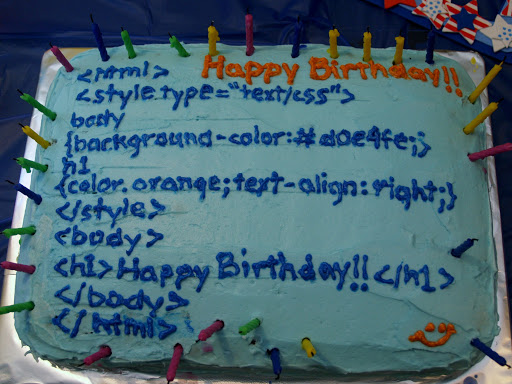 <html> Happy Birthday!!
<style type="text/css">
body
{background-color:#d0e4fe;}
h1
{color.orange; text-align: right;}
</style>
<body>
<h1>Happy Birthday!!</h1>
</body>
</html>